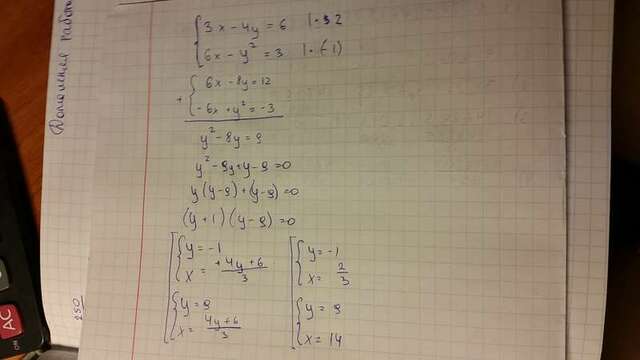 Домашняя работа
250
AC
{ 3x - 4y = 6 | · 2
{ 6x - y² = 3 | · (-1)
+ { 6x - 8y = 12
{ -6x + y² = -3
y² - 8y = 9
y² - 9y + y - 9 = 0
y(y - 9) + (y - 9) = 0
(y + 1)(y - 9) = 0
[ { y = -1
{ x = +4y + 6 / 3
{ y = 9
{ x = 4y + 6 / 3
[ { y = -1
{ x = 2/3
{ y = 9
{ x = 14